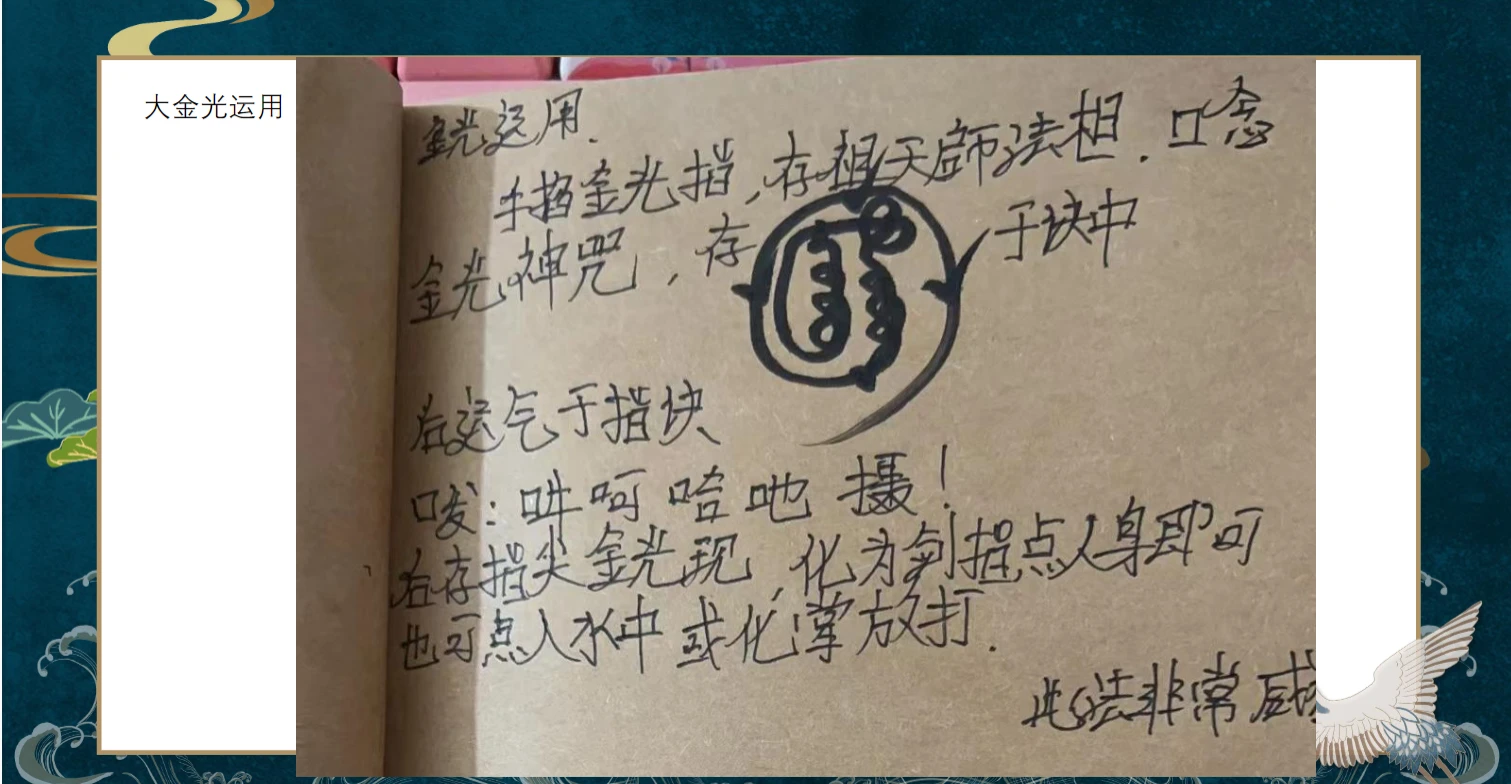 大金光运用
金光运用.
手掐金光指,存祖天师法相.口念
金光神咒,存 于诀中
后运气于指诀
口发:吽呵哈吔 摄!
右存指尖金光现,化为剑指点人身即可
也可点入水中或化掌放打.
此法非常